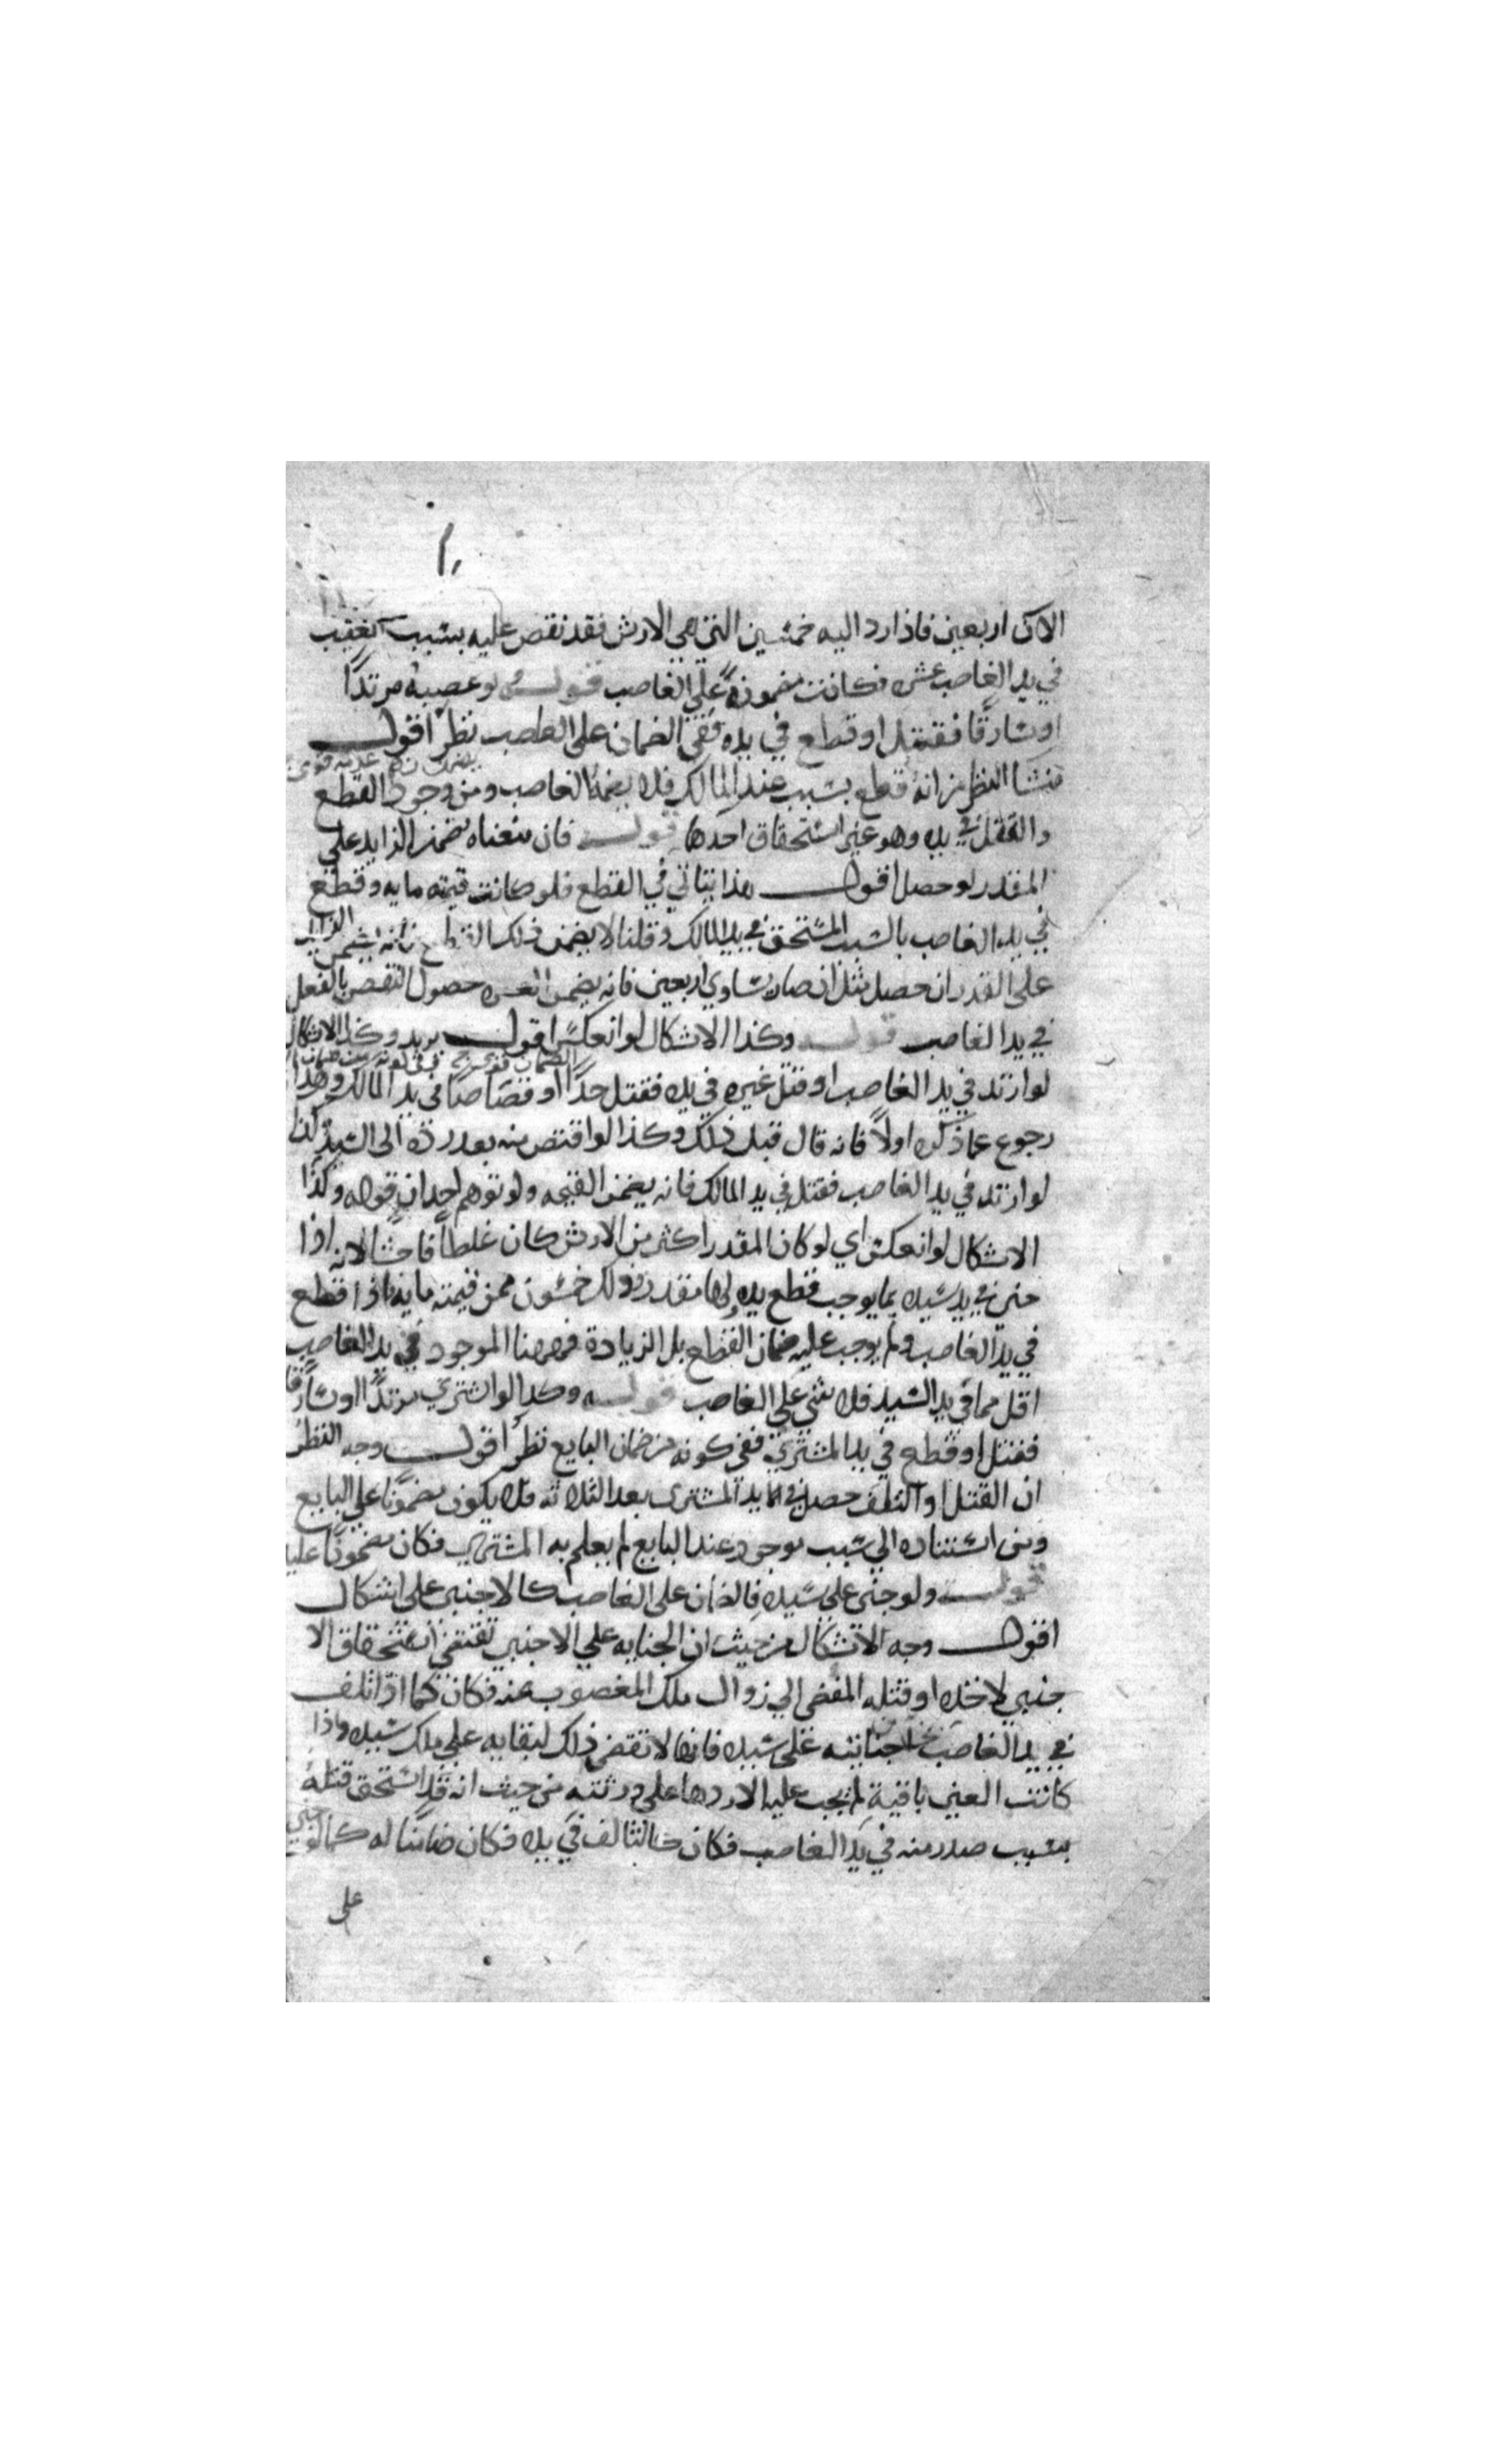 الاكى اربعين فاذا رد اليه خمسين التي هي الارش فقد نقص عليه بسبب
في يد الغاصب عشره فكانت مضمونة على الغاصب قولـــه لو غصبه مرتدًا
او سارقًا فقتل او قطع في يده ففي الضمان على الغاصب نظر اقول
منشا النظر من انه قطع بسبب عند المالك فلا يضمنه الغاصب ومن وجود القطع
والقتل في يده وهو عين استحقاق احدها قولـــه فان منعناه ضمن الزايد على
المقدر لو حصل اقول هذا يتاتي في القطع فلو كانت قيمته مايه وقطع
في يد الغاصب بالسبب المستحق في يد المالك وقلنا لا يضمن ذلك القطع فانه يضمن الزايد
على القدر ان حصل مثل ان صار يساوي اربعين فانه يضمن العشره حصول النقص بالفعل
في يد الغاصب قولـــه وكذا الاشكال لو انعكس اقول يريد وكذا الاشكال
لو ارتد في يد الغاصب او قتل غيره في يده فقتل حدًا او قصاصًا في يد المالك وهذا
رجوع عما ذكره اولاً فانه قال قبل ذلك وكذا لو اقتص منه بعد رده الى السيد كذا
لو ارتد في يد الغاصب فقتل في يد المالك فانه يضمن القيمه ولو توهم احد ان قوله وكذا
الاشكال لو انعكس اي لو كان المقدر اكثر من الارش كان غلطاً فاحشا لانه اذا
جنى في يد سيده بما يوجب قطع يده ولها مقدر وذلك خمسون ممن قيمته مايه فاذا قطع
في يد الغاصب ولم يوجب عليه ضمان القطع بل الزيادة فههنا الموجود في يد الغاصب
اقل مما في يد السيد فلا شئ على الغاصب قولـــه وكذا لو اشترى مرتدًا او سارقًا
فقتل او قطع في يد المشتري ففي كونه من ضمان البايع نظر اقول وجه النظر
ان القتل او التلف حصل في يد المشترى بعد الثلاثه فلا يكون مضمونًا على البايع
ومن استناده الي سبب موجود عند البايع لم يعلم به المشتري فكان مضمونًا عليه
قولـــه ولو جنى على سيده فالضمان على الغاصب كالاجنبي على اشكال
اقول وجه الاشكال من حيث ان الجنايه على الاجنبي تقتضى استحقاق الا
جنبي لاخذه او قتله المفضى الي زوال ملك المغصوب عنه فكان كما اذا تلف
في يد الغاصب جنايته على سيده فانها لا تقتضى ذلك لبقايه على ملك سيده واذا
كانت العين باقية لم يجب عليه الا ردها على ورثته من حيث انه قد استحق قتله
بسبب صدر منه في يد الغاصب فكان كالتالف في يده فكان ضامنا له كما لو جنى
على